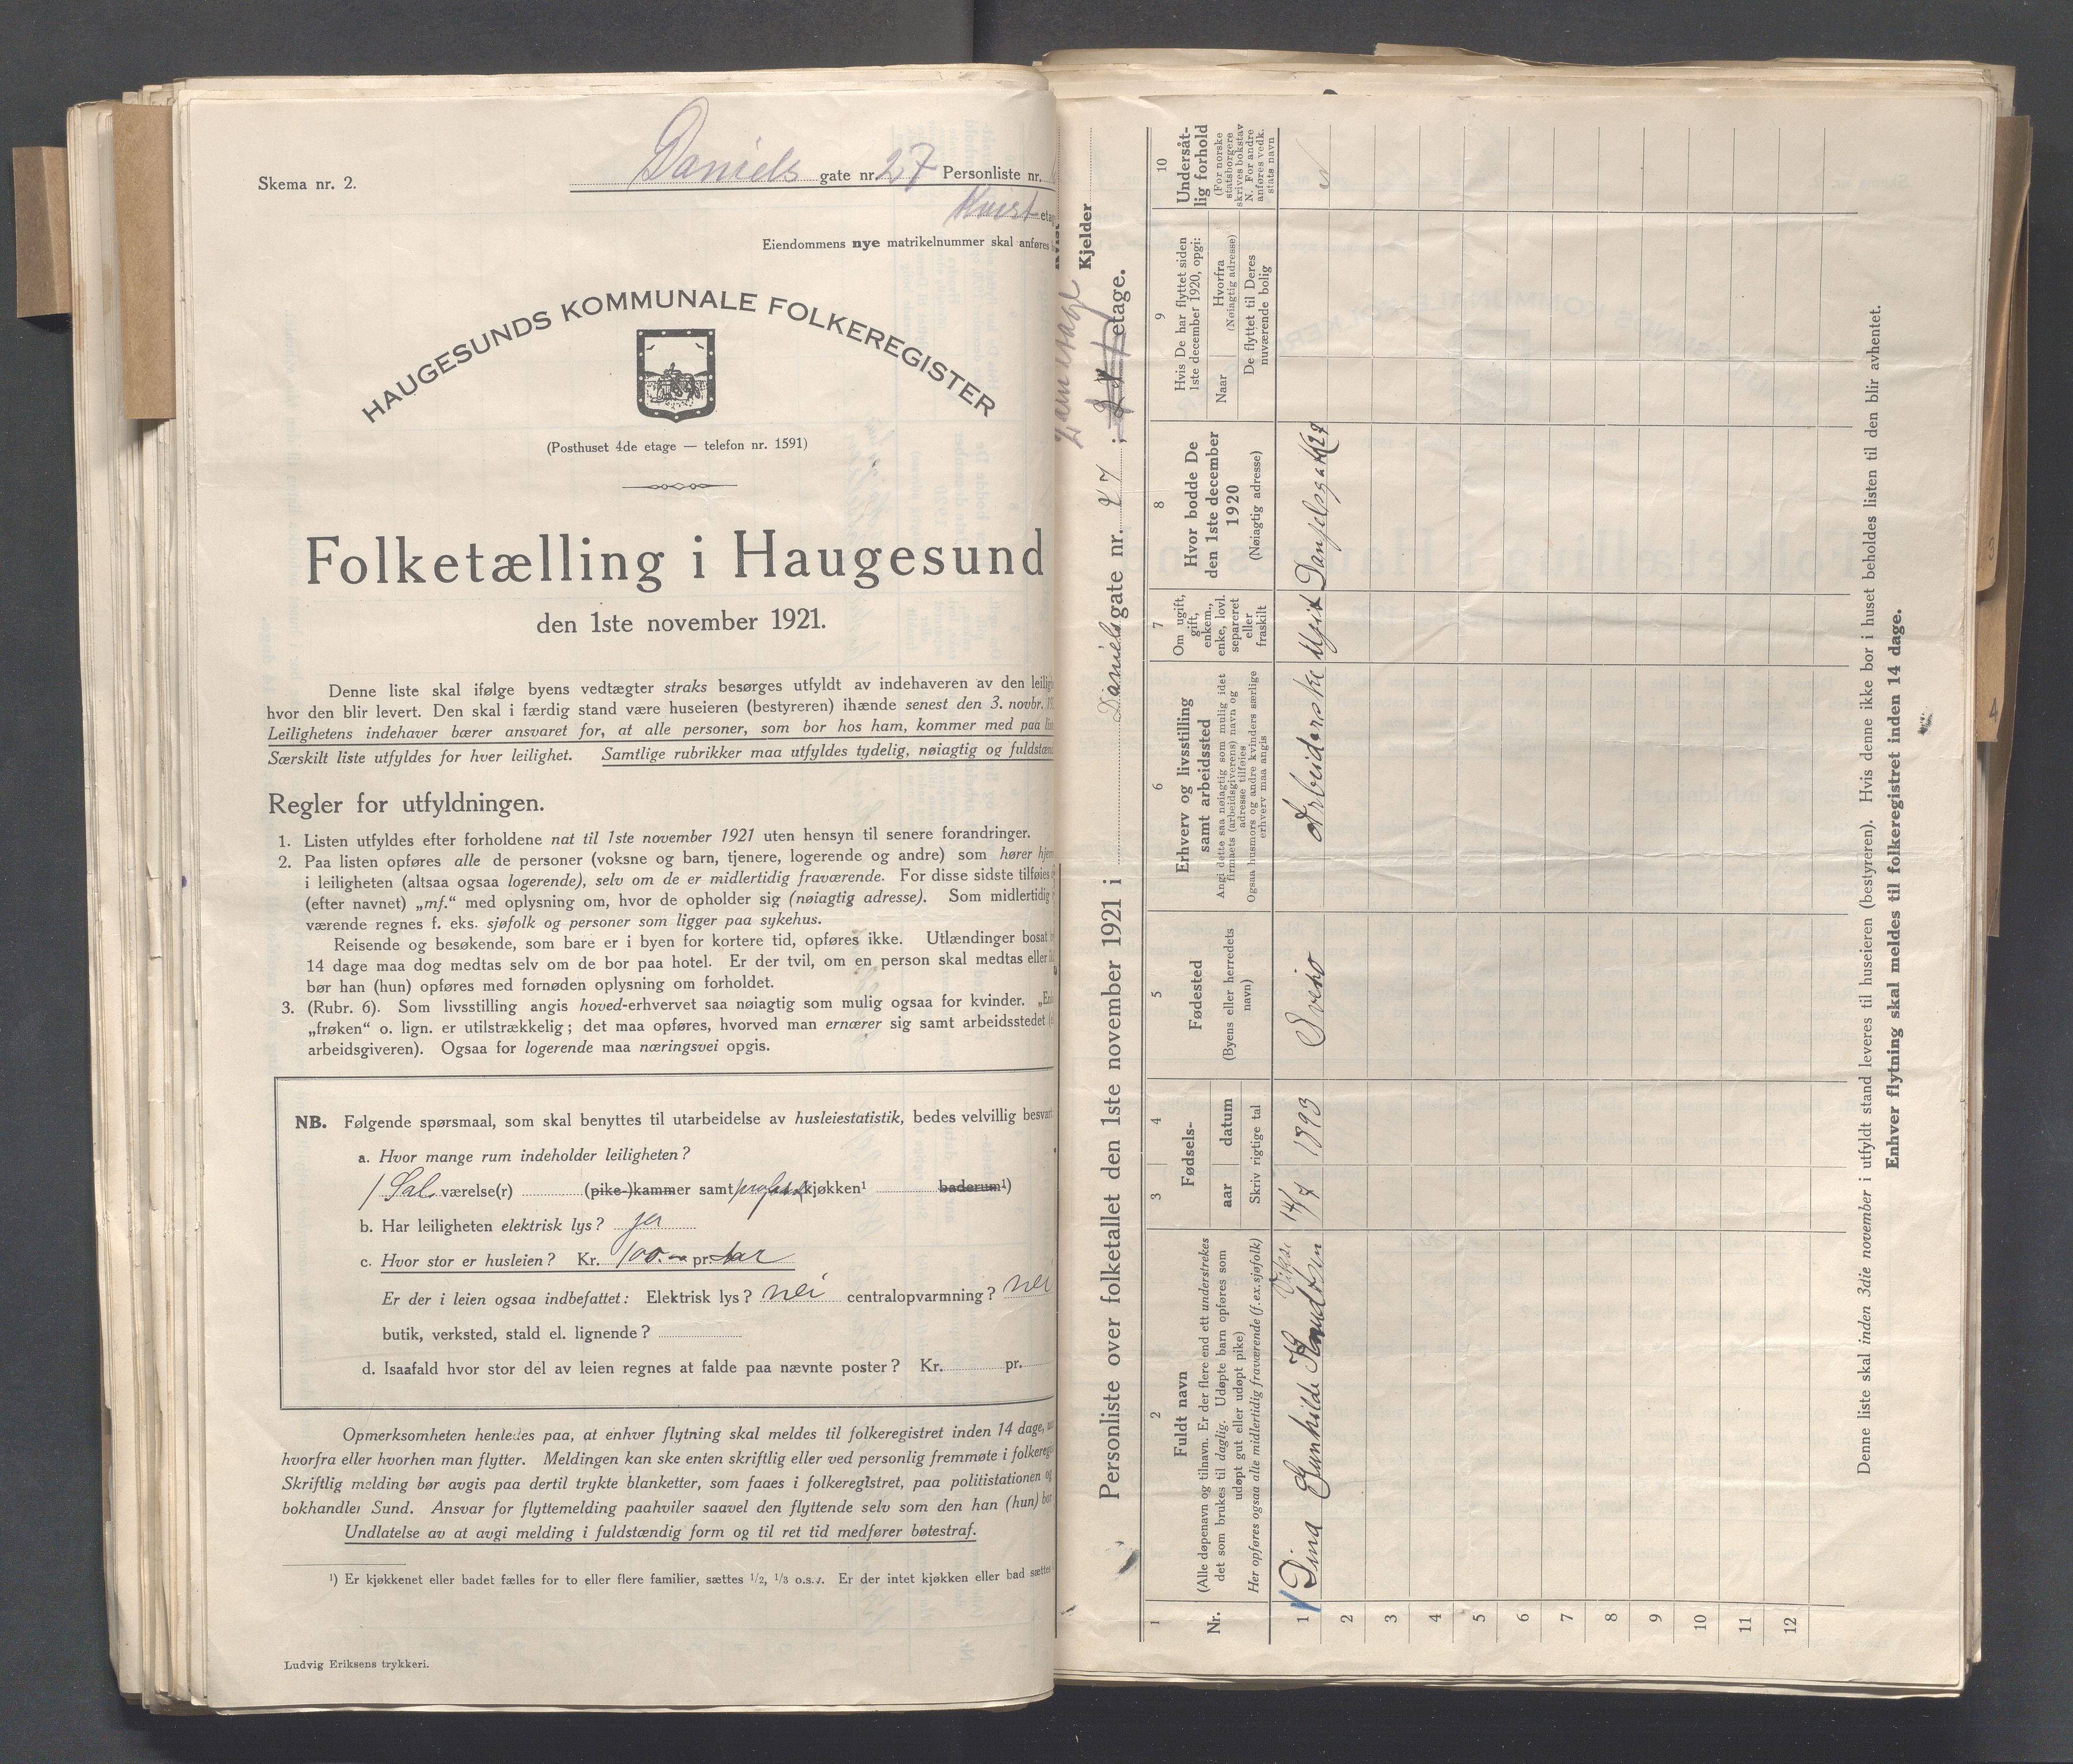 Skema nr. 2.
Daniels gate nr. 27 Personliste nr.
Kvist etag
Eiendommens nye matrikelnummer skal anføres
HAUGESUNDS KOMMUNALE FOLKEREGISTER
(Posthuset 4de etage — telefon nr. 1591)
Folketælling i Haugesund
den 1ste november 1921.
Denne liste skal ifølge byens vedtægter straks besørges utfyldt av indehaveren av den leiligh
hvor den blir levert. Den skal i færdig stand være huseieren (bestyreren) ihænde senest den 3. novbr. 19
Leilighetens indehaver bærer ansvaret for, at alle personer, som bor hos ham, kommer med paa lis
Særskilt liste utfyldes for hver leilighet. Samtlige rubrikker maa utfyldes tydelig, nøiagtig og fuldstænd
Regler for utfyldningen.
1. Listen utfyldes efter forholdene nat til 1ste november 1921 uten hensyn til senere forandringer.
2. Paa listen opføres alle de personer (voksne og barn, tjenere, logerende og andre) som hører hjem
i leiligheten (altsaa ogsaa logerende), selv om de er midlertidig fraværende. For disse sidste tilføies
(efter navnet) „mf.“ med oplysning om, hvor de opholder sig (nøiagtig adresse). Som midlertidig
værende regnes f. eks. sjøfolk og personer som ligger paa sykehus.
Reisende og besøkende, som bare er i byen for kortere tid, opføres ikke. Utlændinger bosat
14 dage maa dog medtas selv om de bor paa hotel. Er der tvil, om en person skal medtas eller
bør han (hun) opføres med fornøden oplysning om forholdet.
3. (Rubr. 6). Som livsstilling angis hoved-erhvervet saa nøiagtig som mulig ogsaa for kvinder. „En
„frøken“ o. lign. er utilstrækkelig; det maa opføres, hvorved man ernærer sig samt arbeidsstedet
arbeidsgiveren). Ogsaa for logerende maa næringsvei opgis.
NB. Følgende spørsmaal, som skal benyttes til utarbeidelse av husleiestatistik, bedes velvillig besvart
a. Hvor mange rum indeholder leiligheten?
1 Sal værelse(r) (pike-)kammer samt kjøkken¹ baderum¹)
b. Har leiligheten elektrisk lys? ja
c. Hvor stor er husleien? Kr. 100.- pr. aar
Er der i leien ogsaa indbefattet: Elektrisk lys? nei centralopvarmning? nei
butik, verksted, stald el. lignende?
d. Isaafald hvor stor del av leien regnes at falde paa nævnte poster? Kr. pr.
Opmerksomheten henledes paa, at enhver flytning skal meldes til folkeregistret inden 14 dage,
hvorfra eller hvorhen man flytter. Meldingen kan ske enten skriftlig eller ved personlig fremmøte i folkeregi
Skriftlig melding bør avgis paa dertil trykte blanketter, som faaes i folkeregistret, paa politistationen og
bokhandler Sund. Ansvar for flyttemelding paahviler saavel den flyttende selv som den han (hun) bor
Undlatelse av at avgi melding i fuldstændig form og til ret tid medfører bøtestraf.
¹) Er kjøkkenet eller badet fælles for to eller flere familier, sættes 1/2, 1/3 o.s.v. Er der intet kjøkken eller bad sættes
Ludvig Eriksens trykkeri.
Kvist
Kjelder
2den etage
Personliste over folketallet den 1ste november 1921 i Daniels gate nr. 27 ; etage.
1 2 3 4 5 6 7 8 9 10
Nr.
Fuldt navn
(Alle døpenavn og tilnavn. Er der flere end ett understrekes
det som brukes til daglig. Udøpte barn opføres som
udøpt gut eller udøpt pike)
Her opføres ogsaa alle midlertidig fraværende (f. ex. sjøfolk)
Fødsels-
aar datum
Skriv rigtige tal
Fødested
(Byens eller herredets
navn)
Erhverv og livsstilling
samt arbeidssted
Angi dette saa nøiagtig som mulig idet
firmaets (arbeidsgiverens) navn og
adresse tilføies
Ogsaa husmors og andre kvinders særlige
erhverv maa angis
Om ugift,
gift,
enkem.,
enke, lovl.
separeret
eller
fraskilt
Hvor bodde De
den 1ste december
1920
(Nøiagtig adresse)
Hvis De har flyttet siden
1ste december 1920, opgi:
Naar
Hvorfra
(Nøiagtig adresse)
De flyttet til Deres
nuværende bolig
Undersåt-
lig forhold
(For norske
statsborgere
skrives bokstav
N. For andre
anføres vedk.
stats navn
1 Dina Gunhilde Knudtsen 14/7 1893 Sveio Arbeiderske Ugift Danjelsgat 27 N
2
3
4
5
6
7
8
9
10
11
12
Denne liste skal inden 3die november i utfyldt stand leveres til huseieren (bestyreren). Hvis denne ikke bor i huset beholdes listen til den blir avhentet.
Enhver flytning skal meldes til folkeregistret inden 14 dage.